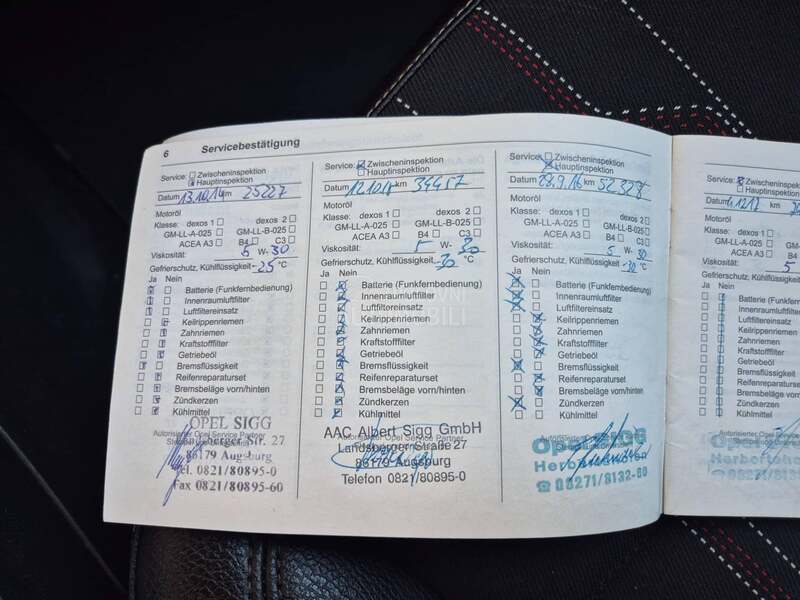 6 Servicebestätigung
Service: Zwischeninspektion
Hauptinspektion
Datum 13.10.14 km 25227
Motoröl
Klasse: dexos 1 dexos 2
GM-LL-A-025 GM-LL-B-025
ACEA A3 B4 C3
Viskosität: 5 W-30
Gefrierschutz, Kühlflüssigkeit -25 °C
Ja Nein
Batterie (Funkfernbedienung)
Innenraumluftfilter
Luftfiltereinsatz
Keilrippenriemen
Zahnriemen
Kraftstofffilter
Getriebeöl
Bremsflüssigkeit
Reifenreparaturset
Bremsbeläge vorn/hinten
Zündkerzen
Kühlmittel
OPEL SIGG
Autorisierter Opel Service Partner
Str. 27
86179 Augsburg
Tel. 0821/80895-0
Fax 0821/80895-60
Service: Zwischeninspektion
Hauptinspektion
Datum km
Motoröl
Klasse: dexos 1 dexos 2
GM-LL-A-025 GM-LL-B-025
ACEA A3 B4 C3
Viskosität: 5 W-30
Gefrierschutz, Kühlflüssigkeit -30 °C
Ja Nein
Batterie (Funkfernbedienung)
Innenraumluftfilter
Luftfiltereinsatz
Keilrippenriemen
Zahnriemen
Kraftstofffilter
Getriebeöl
Bremsflüssigkeit
Reifenreparaturset
Bremsbeläge vorn/hinten
Zündkerzen
Kühlmittel
AAC Albert Sigg GmbH
Autorisierter Opel Service Partner
Landsberger Straße 27
86179 Augsburg
Telefon 0821/80895-0
Service: Zwischeninspektion
Hauptinspektion
Datum 28.9.16 km 52328
Motoröl
Klasse: dexos 1 dexos 2
GM-LL-A-025 GM-LL-B-025
ACEA A3 B4 C3
Viskosität: 5 W-30
Gefrierschutz, Kühlflüssigkeit -30 °C
Ja Nein
Batterie (Funkfernbedienung)
Innenraumluftfilter
Luftfiltereinsatz
Keilrippenriemen
Zahnriemen
Kraftstofffilter
Getriebeöl
Bremsflüssigkeit
Reifenreparaturset
Bremsbeläge vorn/hinten
Zündkerzen
Kühlmittel
08271/8132-80
Service: Zwischeninspektion
Hauptinspektion
Datum
Motoröl
Klasse: dexos 1
GM-LL-A-025
ACEA A3
Viskosität: 5
Gefrierschutz, Kühlflüssigkeit
Ja Nein
Batterie (Funkfernb
Innenraumluftfilter
Luftfiltereinsatz
Keilrippenriemen
Zahnriemen
Kraftstofffilter
Getriebeöl
Bremsflüssigkeit
Reifenreparaturset
Bremsbeläge vorn/
Zündkerzen
Kühlmittel